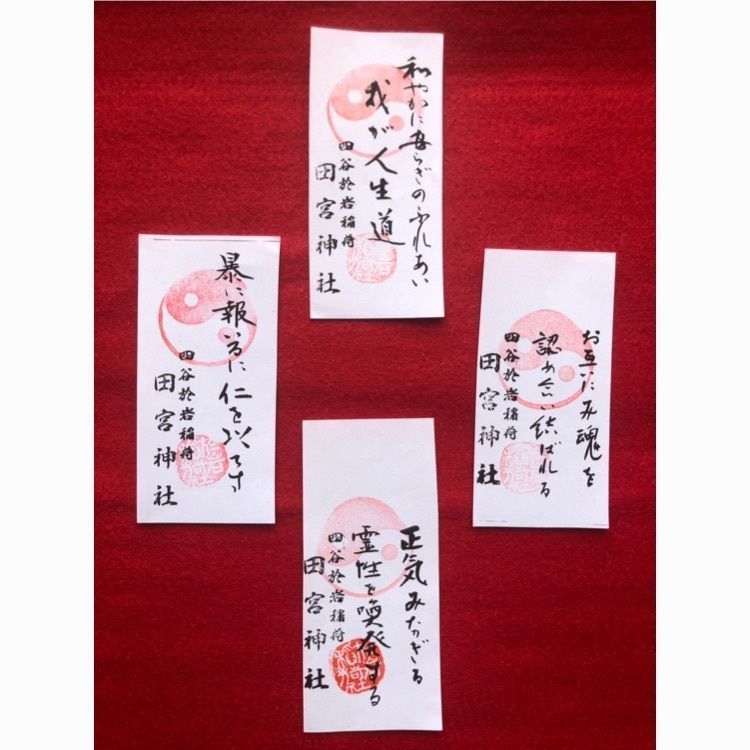 和やかに安らぎのふれあい
我が人生道
四谷於岩稲荷
田宮神社
暴に報いるに仁を以てす
四谷於岩稲荷
田宮神社
お互いにみ魂を
認め合い結ばれる
四谷於岩稲荷
田宮神社
正気みなぎる
霊性を喚発する
四谷於岩稲荷
田宮神社